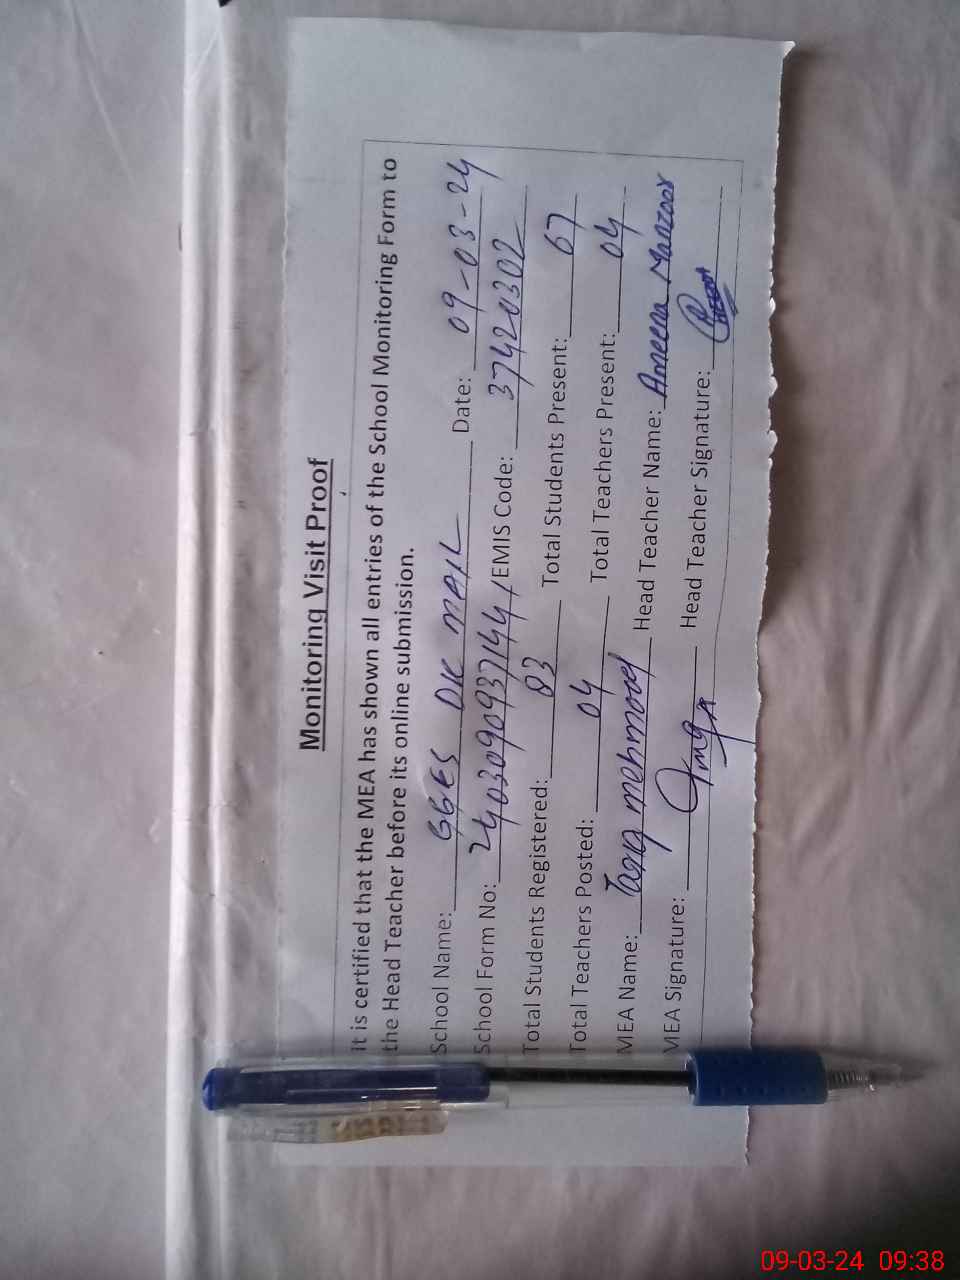 Monitoring Visit Proof
It is certified that the MEA has shown all entries of the School Monitoring Form to
the Head Teacher before its online submission.
School Name: GGES DK MAIL Date: 09-03-24
School Form No: 2403090937144 /EMIS Code: 37420302
Total Students Registered: 83 Total Students Present: 67
Total Teachers Posted: 04 Total Teachers Present: 04
MEA Name: Tariq mehmood Head Teacher Name: Ameena Manzoor
MEA Signature: Head Teacher Signature:
09-03-24 09:38